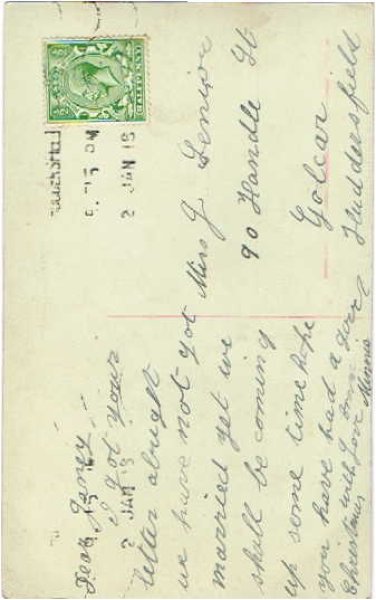 Dear Janey
I got your
letter alright
we have not got
married yet we
shall be coming
up some time hope
you have had a good
Christmas with love from
Minnie
Miss J Senior
90 Handle St
Golcar
Huddersfield
15 PM
2 JAN
2 JAN